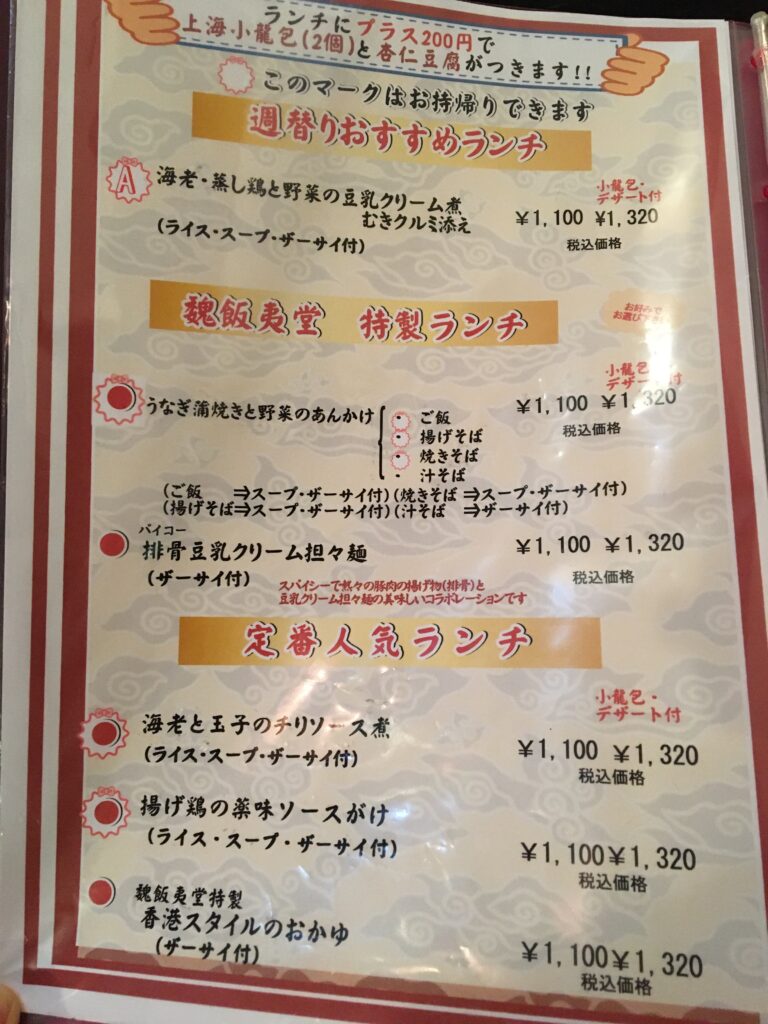 ランチにプラス200円で
上海小龍包(2個)と杏仁豆腐がつきます!!
このマークはお持帰りできます
週替りおすすめランチ
A 海老・蒸し鶏と野菜の豆乳クリーム煮
むきクルミ添え
(ライス・スープ・ザーサイ付)
小龍包・
デザート付
¥1,100 ¥1,320
税込価格
魏飯夷堂 特製ランチ
お好みで
お選び下さい
小龍包・
デザート付
うなぎ蒲焼きと野菜のあんかけ
¥1,100 ¥1,320
税込価格
・ご飯
・揚げそば
・焼きそば
・汁そば
(ご飯 ⇒スープ・ザーサイ付)(焼きそば ⇒スープ・ザーサイ付)
(揚げそば⇒スープ・ザーサイ付)(汁そば ⇒ザーサイ付)
パイコー
排骨豆乳クリーム担々麺
¥1,100 ¥1,320
(ザーサイ付)
税込価格
スパイシーで熱々の豚肉の揚げ物(排骨)と
豆乳クリーム担々麺の美味しいコラボレーションです
定番人気ランチ
小龍包・
デザート付
海老と玉子のチリソース煮
¥1,100 ¥1,320
(ライス・スープ・ザーサイ付)
税込価格
揚げ鶏の薬味ソースがけ
(ライス・スープ・ザーサイ付)
¥1,100¥1,320
税込価格
魏飯夷堂特製
香港スタイルのおかゆ
(ザーサイ付)
¥1,100¥1,320
税込価格